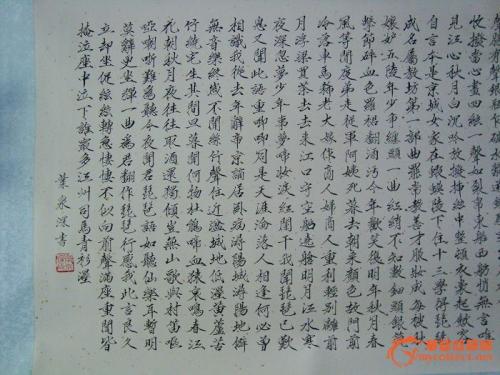 收撥當心畫四絃一聲如裂帛東船西舫悄無言唯
見江心秋月白沉吟放撥插絃中整頓衣裳起斂容
自言本是京城女家在蝦蟆陵下住十三學得琵琶
成名屬教坊第一部曲罷常教善才服妝成每被秋
娘妒五陵年少爭纏頭一曲紅綃不知數鈿頭銀篦
擊節碎血色羅裙翻酒污今年歡笑復明年秋月春
風等閒度弟走從軍阿姨死暮去朝來顏色故門前
冷落車馬稀老大嫁作商人婦商人重利輕別離前
月浮梁買茶去去來江口守空船遶艙明月江水寒
夜深忽夢少年事夢啼妝淚紅闌干我聞琵琶已歎
息又聞此語重唧唧同是天涯淪落人相逢何必曾
相識我從去年辭帝京謫居臥病潯陽城潯陽地僻
無音樂終歲不聞絲竹聲住近湓城地低濕黃蘆苦
竹繞宅生其間旦暮聞何物杜鵑啼血猿哀鳴春江
花朝秋月夜往往取酒還獨傾豈無山歌與村笛嘔
啞嘲哳難為聽今夜聞君琵琶語如聽仙樂耳暫明
莫辭更坐彈一曲為君翻作琵琶行感我此言良久
立却坐促絃絃轉急悽悽不似向前聲滿座重聞皆
掩泣座中泣下誰最多江州司馬青衫濕
mycollect.net